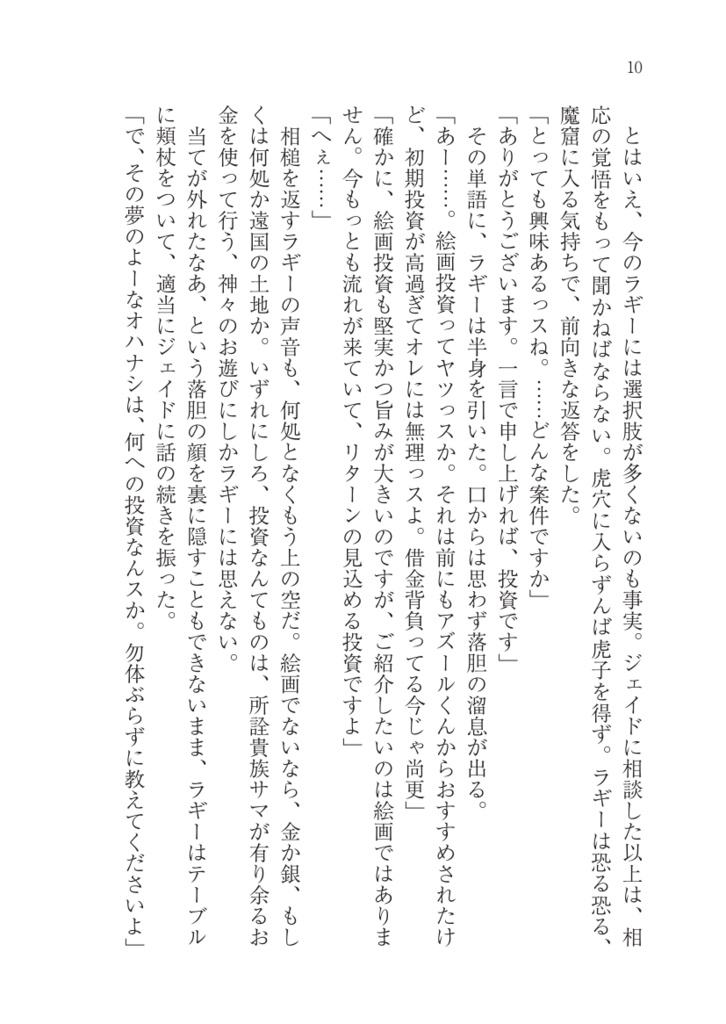 10
とはいえ、今のラギーには選択肢が多くないのも事実。ジェイドに相談した以上は、相
応の覚悟をもって聞かねばならない。虎穴に入らずんば虎子を得ず。ラギーは恐る恐る、
魔窟に入る気持ちで、前向きな返答をした。
「とっても興味あるっスね。……どんな案件ですか」
「ありがとうございます。一言で申し上げれば、投資です」
その単語に、ラギーは半身を引いた。口からは思わず落胆の溜息が出る。
「あー……。絵画投資ってヤツっスか。それは前にもアズールくんからおすすめされたけ
ど、初期投資が高過ぎてオレには無理っスよ。借金背負ってる今じゃ尚更」
「確かに、絵画投資も堅実かつ旨みが大きいのですが、ご紹介したいのは絵画ではありま
せん。今もっとも流れが来ていて、リターンの見込める投資ですよ」
「へぇ……」
相槌を返すラギーの声音も、何処となくもう上の空だ。絵画でないなら、金か銀、もし
くは何処か遠国の土地か。いずれにしろ、投資なんてものは、所詮貴族サマが有り余るお
金を使って行う、神々のお遊びにしかラギーには思えない。
当てが外れたなあ、という落胆の顔を裏に隠すこともできないまま、ラギーはテーブル
に頬杖をついて、適当にジェイドに話の続きを振った。
「で、その夢のよーなオハナシは、何への投資なんスか。勿体ぶらずに教えてくださいよ」